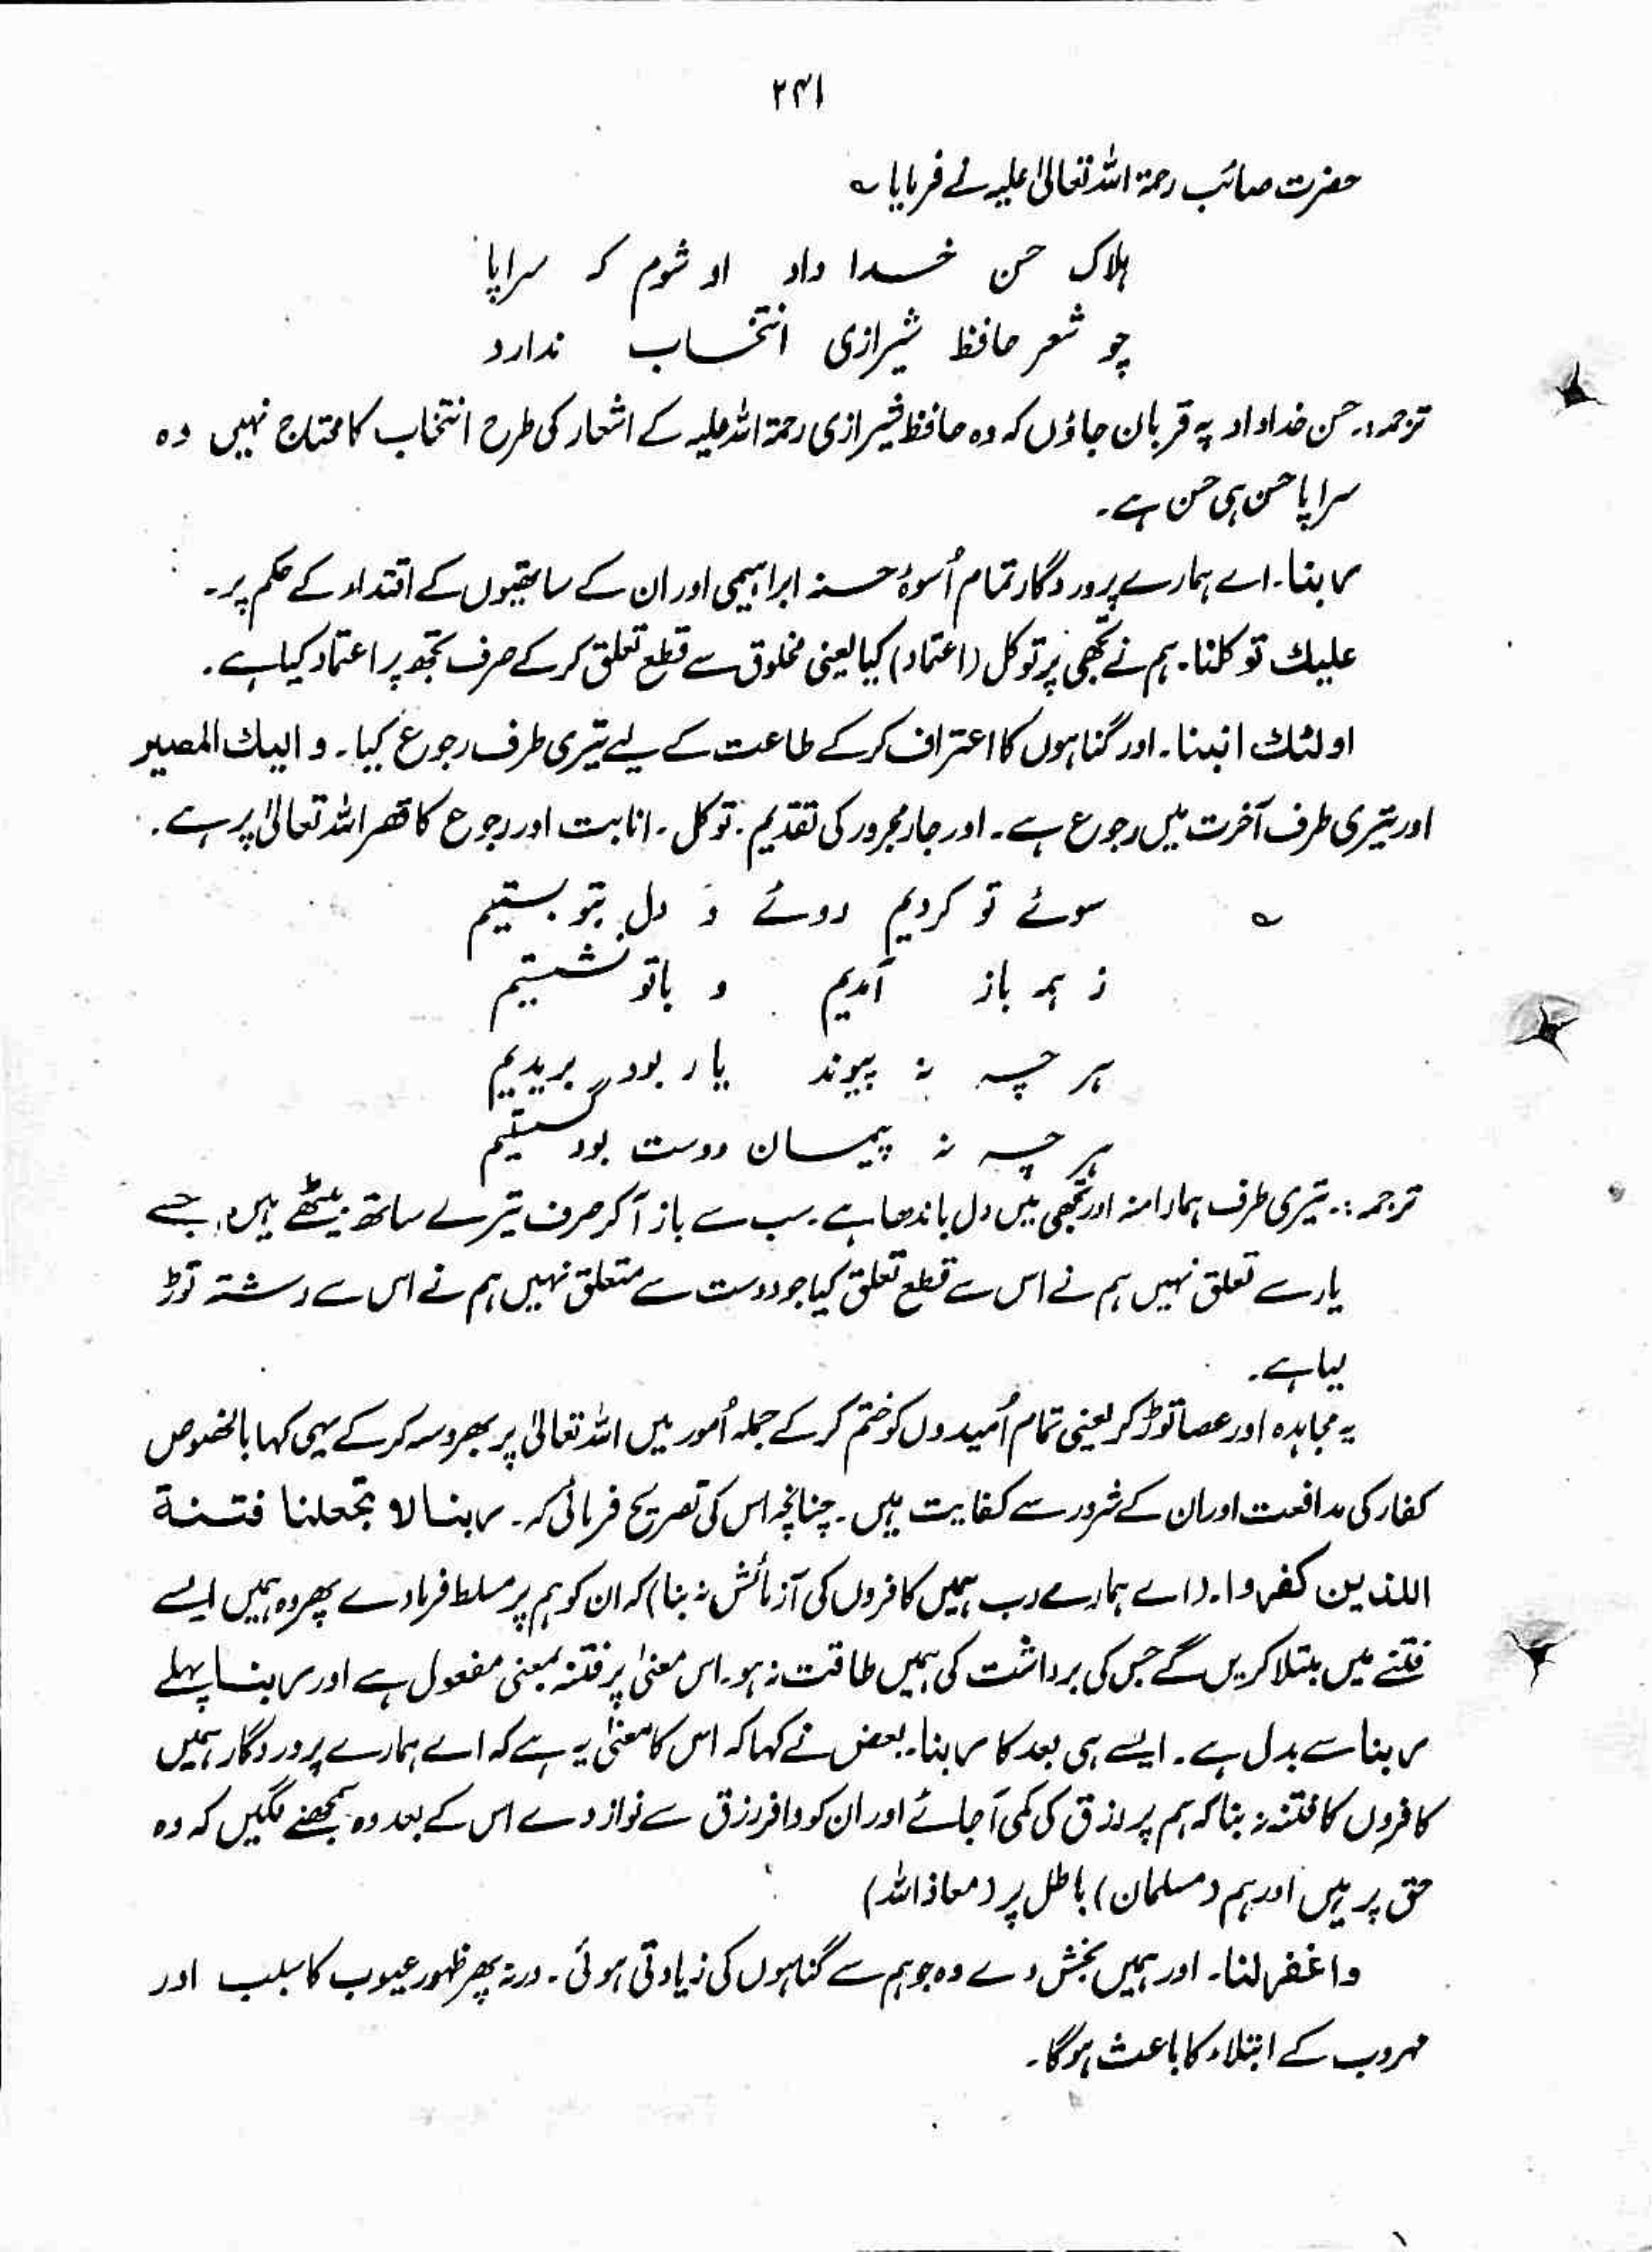 ۲۴۱
حضرت صائب رحمۃ اللہ تعالیٰ علیہ نے فرمایا ؎
ہلاک حسن خدا داد او شوم کہ سراپا
چو شعر حافظ شیرازی انتخاب ندارد
ترجمہ:۔ حسن خداداد پہ قربان جاؤں کہ وہ حافظ شیرازی رحمۃ اللہ علیہ کے اشعار کی طرح انتخاب کا محتاج نہیں وہ
سراپا حسن ہی حسن ہے۔
ربنا۔ اے ہمارے پروردگار تمام اُسوۂ حسنہ ابراہیمی اور ان کے ساتھیوں کے اقتداء کے حکم پر۔
علیك توکلنا۔ ہم نے تجھی پر توکل (اعتماد) کیا یعنی مخلوق سے قطع تعلق کر کے صرف تجھ پر اعتماد کیا ہے۔
اولئك انبنا۔ اور گناہوں کا اعتراف کر کے طاعت کے لیے تیری طرف رجوع کیا۔ و الیك المصیر
اور تیری طرف آخرت میں رجوع ہے۔ اور جار مجرور کی تقدیم۔ توکل۔ انابت اور رجوع کا قصر اللہ تعالیٰ پر ہے۔
؎ سوئے تو کردیم روئے و دل بتو بستیم
ز ہمہ باز آمدیم و باتو نشستیم
ہر چہ نہ پیوند یار بود بریدیم
ہر چہ نہ پیمان دوست بود گسستیم
ترجمہ:۔ تیری طرف ہمارا منہ اور تجھی میں دل باندھا ہے۔ سب سے باز آ کر صرف تیرے ساتھ بیٹھے ہیں، جسے
یار سے تعلق نہیں ہم نے اس سے قطع تعلق کیا جو دوست سے متعلق نہیں ہم نے اس سے رشتہ توڑ
لیا ہے۔
یہ مجاہدہ اور عصا توڑ کر یعنی تمام اُمیدوں کو ختم کر کے جملہ اُمور میں اللہ تعالیٰ پر بھروسہ کر کے یہی کہا بالخصوص
کفار کی مدافعت اور ان کے شرور سے کفایت میں۔ چنانچہ اس کی تصریح فرمائی کہ۔ ربنا لا تجعلنا فتنة
اللذین کفروا۔ (اے ہمارے رب ہمیں کافروں کی آزمائش نہ بنا) کہ ان کو ہم پر مسلط فرمادے پھر وہ ہمیں ایسے
فتنے میں مبتلا کریں گے جس کی برداشت کی ہمیں طاقت نہ ہو۔ اس معنیٰ پر فتنہ بمعنی مفعول ہے اور ربنا پہلے
ربنا سے بدل ہے۔ ایسے ہی بعد کا ربنا۔ بعض نے کہا کہ اس کا معنیٰ یہ ہے کہ اے ہمارے پروردگار ہمیں
کافروں کا فتنہ نہ بنا کہ ہم پر رزق کی کمی آ جائے اور ان کو وافر رزق سے نواز دے اس کے بعد وہ سمجھنے لگیں کہ وہ
حق پر ہیں اور ہم (مسلمان) باطل پر (معاذ اللہ)
واغفر لنا۔ اور ہمیں بخش دے وہ جو ہم سے گناہوں کی زیادتی ہوئی۔ ورنہ پھر ظہور عیوب کا سبب اور
مہروب کے ابتلاء کا باعث ہوگا۔